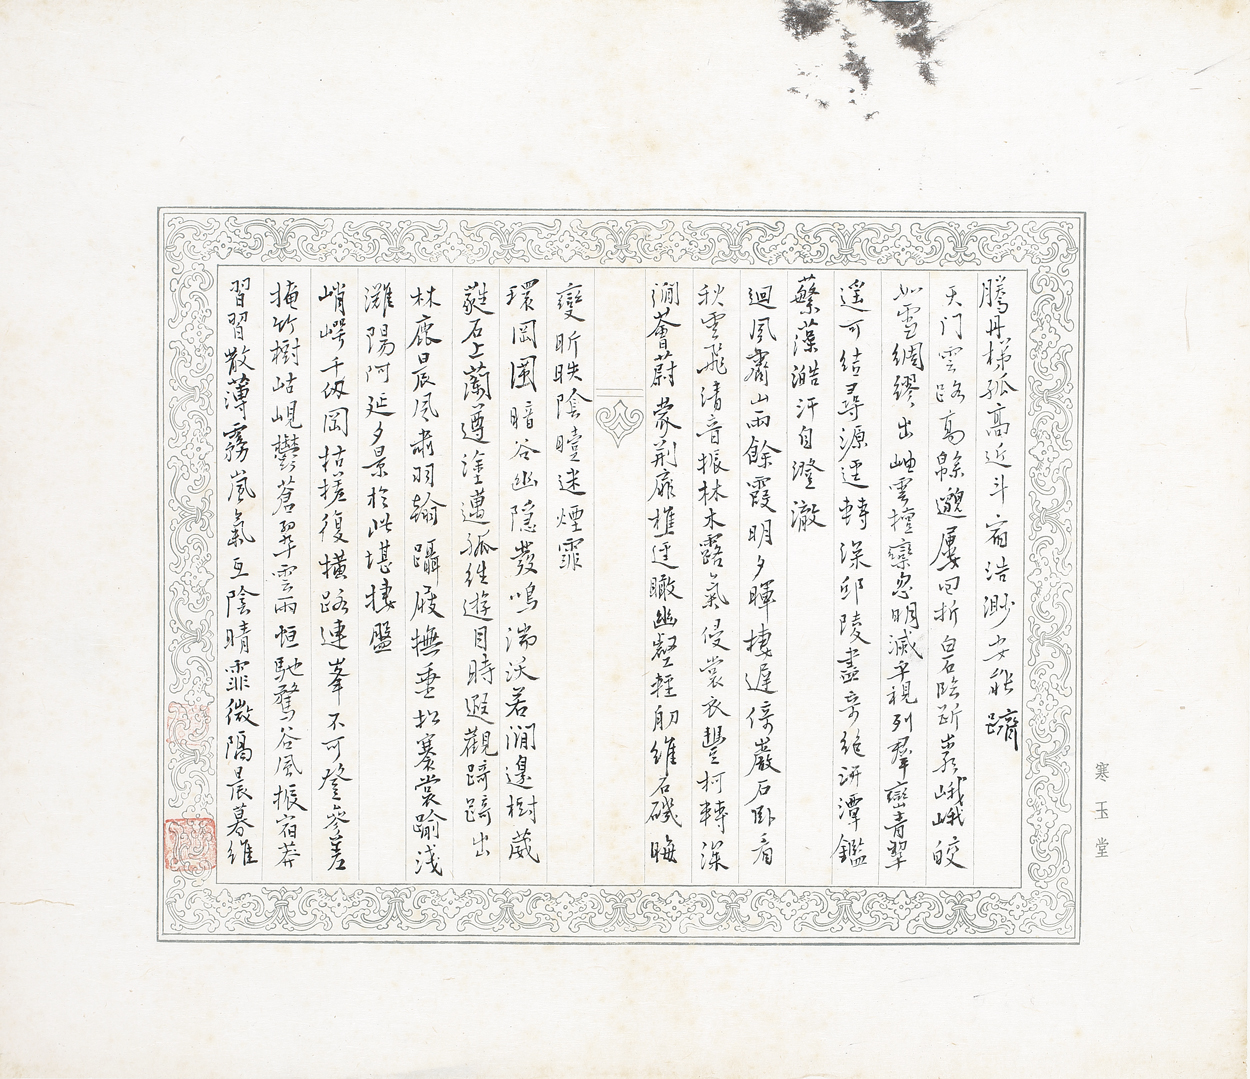 騰丹梯孤高近斗宿浩渺安能躋
天門雲路高緜邈屢回折白石陰斷崇峨峨皎
如雪綢繆出岫雲擅欒忽明滅平視列群巒青翠
遙可結尋源逕轉深邱陵盡奇絕汧潭鑑
蘩藻澔汗自澄澈
迴風肅山雨餘霞明夕暉棲遲倚巖石臥看
秋雲飛清音振林木露氣侵裳衣豐柯轉深
澗薈蔚蒙荊扉樵逕瞰幽壑輕舠維石磯晦
變昕昳陰曀迷煙霏
環岡閬暗谷幽隱發鳴湍沃若澗邊樹葳
蕤石上蘭遵塗邁孤往遊目時遐觀踦䠧出
林麓晨風肅羽翰躡屐撫垂松褰裳踰淺
灘陽阿延夕景於此堪棲盤
峭崿千仞岡枯槎復橫路連峯不可登參差
掩竹樹岵峴鬱蒼翠雲雨恒馳騖谷風振宿莽
習習散薄霧嵐氣互陰晴霏微隔晨暮維
寒玉堂